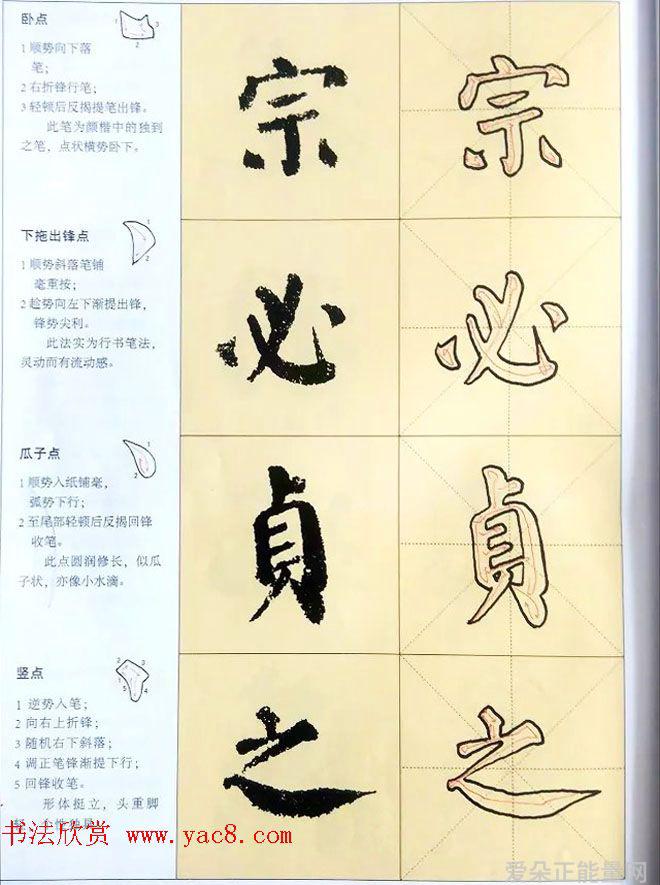 卧点
1 顺势向下落
笔；
2 右折锋行笔；
3 轻顿后反揭提笔出锋。
此笔为颜楷中的独到
之笔，点状横势卧下。
宗
宗
下拖出锋点
1 顺势斜落笔铺
毫重按；
2 趁势向左下渐提出锋，
锋势尖利。
此法实为行书笔法，
灵动而有流动感。
必
必
瓜子点
1 顺势入纸铺毫，
弧势下行；
2 至尾部轻顿后反揭回锋
收笔。
此点圆润修长，似瓜
子状，亦像小水滴。
貞
貞
竖点
1 逆势入笔；
2 向右上折锋；
3 随机右下斜落；
4 调正笔锋渐提下行；
5 回锋收笔。
形体挺立，头重脚
之
之
书法欣赏 www.yac8.com
爱朵正能量网